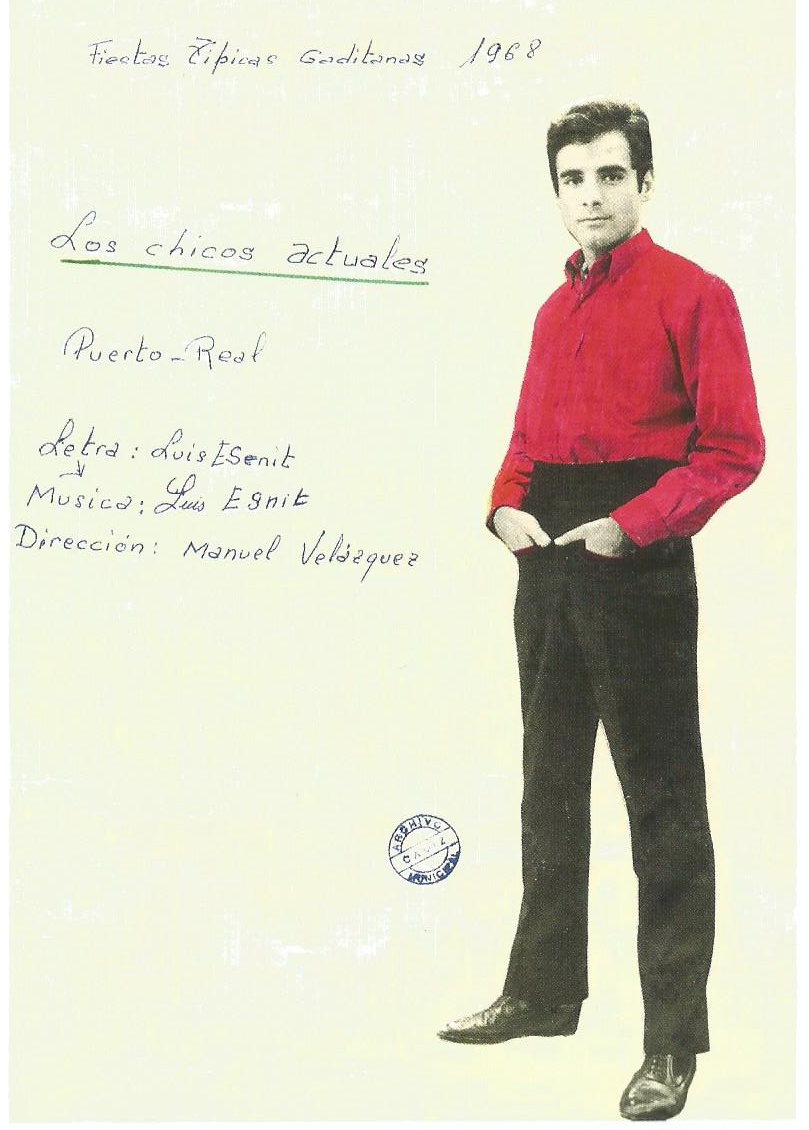 Fiestas Típicas Gaditanas 1968
Los chicos actuales
Puerto-Real
Letra: Luis ESenit
Musica: Luis Egnit
Dirección: Manuel Velázquez
ARCHIVO
CADIZ
MUNICIPAL